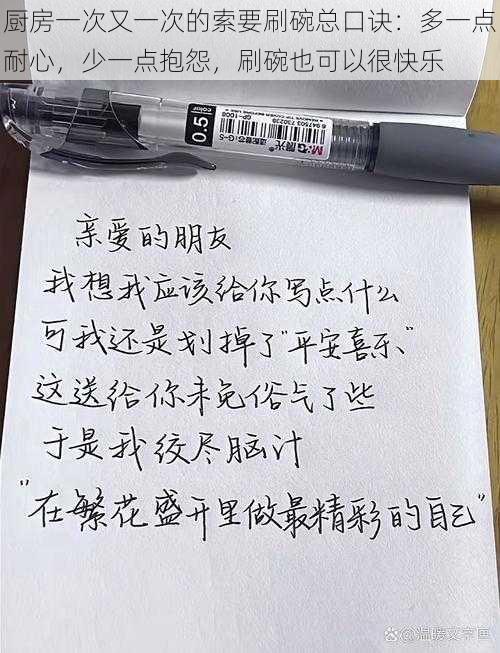 厨房一次又一次的索要刷碗总口诀：多一点
耐心，少一点抱怨，刷碗也可以很快乐
0.5
color
GP-1008
M&G晨光
亲爱的朋友
我想我应该给你写点什么
可我还是划掉了"平安喜乐、"
这送给你未免俗气了些
于是我绞尽脑汁
"在繁花盛开里做最精彩的自己"
@温暖文字画